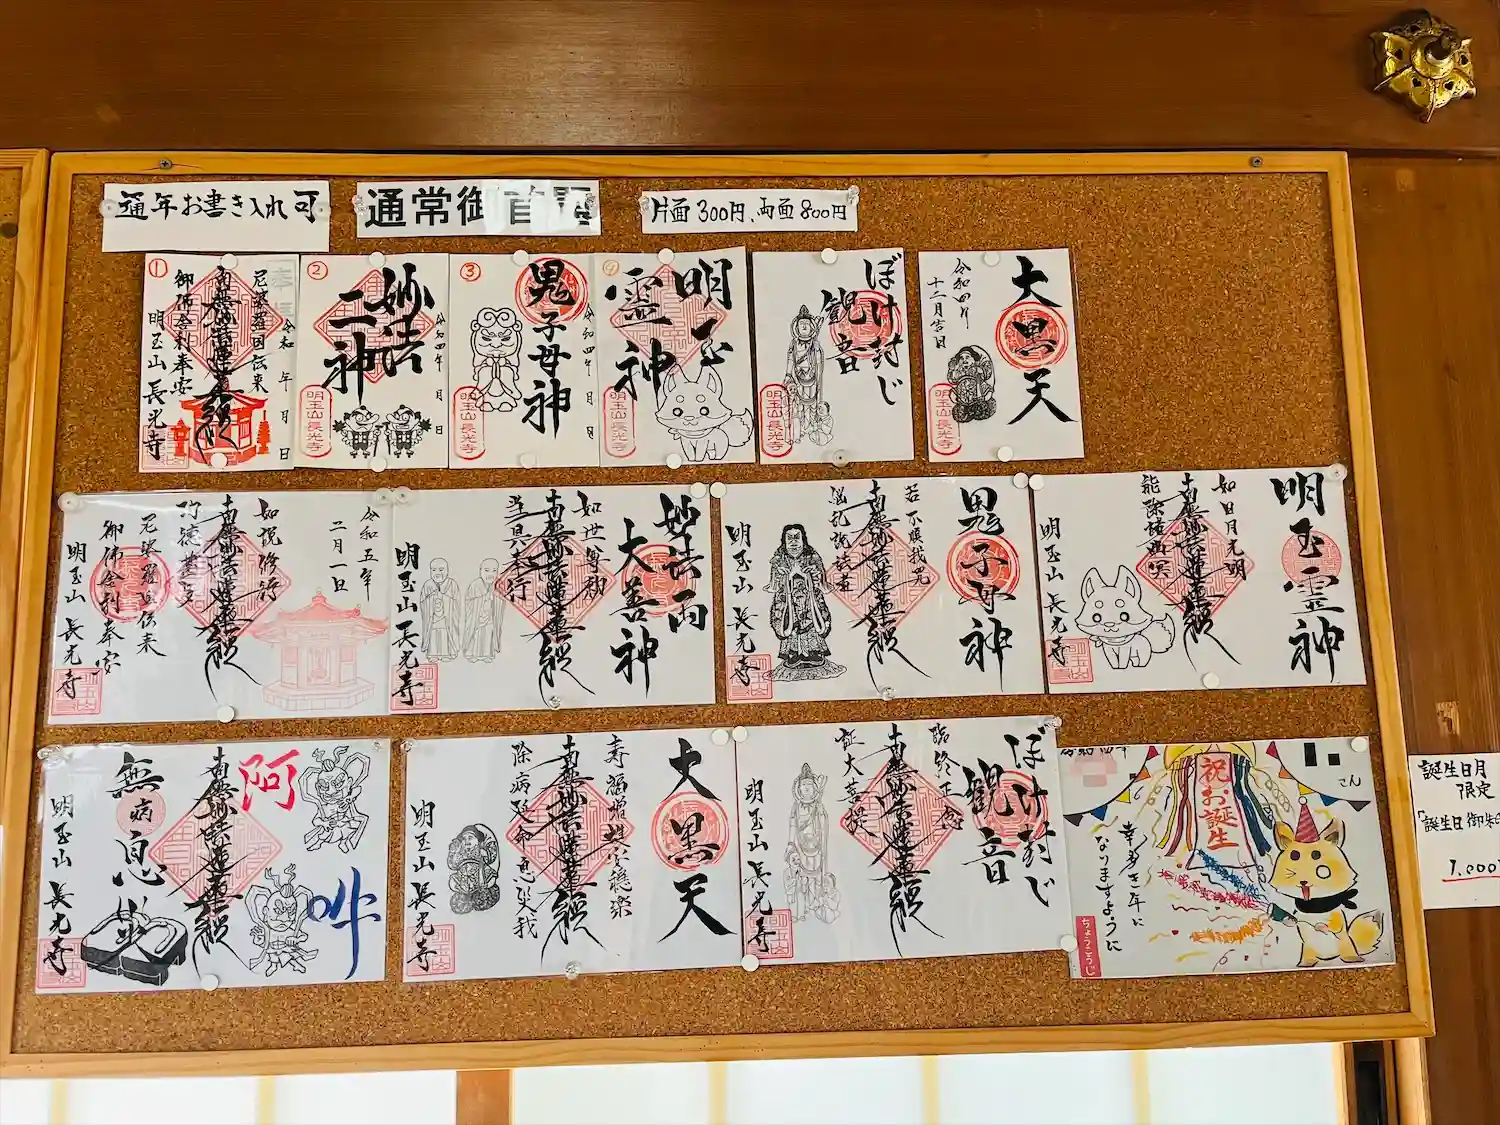 通年お書き入れ可
通常御首題
片面300円、両面800円
①
尼波羅国伝来
南無妙法蓮華経
御佛舎利奉安
明玉山 長光寺
令和 年 月 日
②
妙法
二神
令和四年 月 日
明玉山長光寺
③
鬼子母神
令和四年 月 日
明玉山長光寺
④
明玉
霊神
明玉山長光寺
ぼけ封じ
観音
明玉山長光寺
大黒天
令和四年
十二月吉日
明玉山長光寺
令和五年
二月一日
如説修行
南無妙法蓮華経
尼波羅国伝来
御佛舎利奉安
明玉山 長光寺
妙法両
大善神
如世尊勅
南無妙法蓮華経
当具奉行
明玉山 長光寺
鬼子母神
若不順我咒
南無妙法蓮華経
悩乱説法者
明玉山 長光寺
明玉霊神
如日月光明
南無妙法蓮華経
能除諸幽冥
明玉山 長光寺
阿
吽
南無妙法蓮華経
無病息災
明玉山 長光寺
大黒天
南無妙法蓮華経
除病延命 息災我
明玉山 長光寺
ぼけ封じ
観音
臨終正念
南無妙法蓮華経
証大菩提
明玉山 長光寺
さん
祝お誕生
幸多き年に
なりますように
ちょうこうじ
誕生日月
限定
「誕生日御朱印
1,000